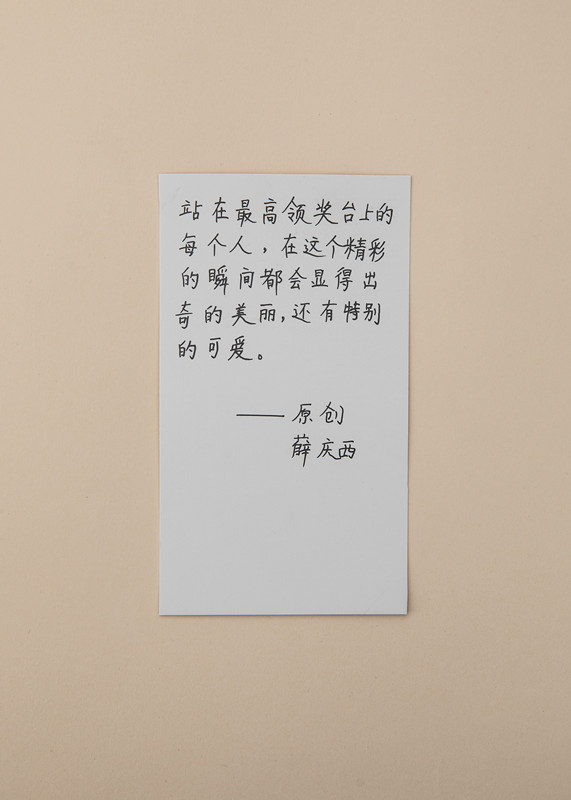 站在最高领奖台上的
每个人，在这个精彩
的瞬间都会显得出
奇的美丽，还有特别
的可爱。
——原创
薛庆西